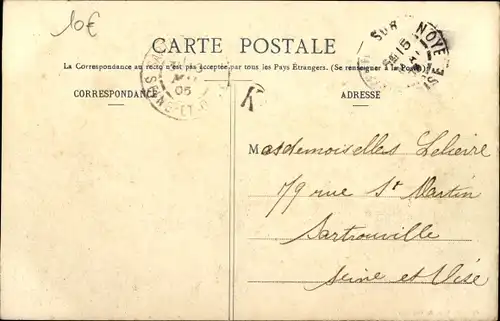 10€
CARTE POSTALE
La Correspondance au recto n'est pas acceptée par tous les Pays Étrangers. (Se renseigner à la Poste)
CORRESPONDANCE
ADRESSE
SUR NOYE
15
05
OISE
K
Masdemoiselles Lelievre
79 rue St Martin
Sartrouville
Seine et Oise